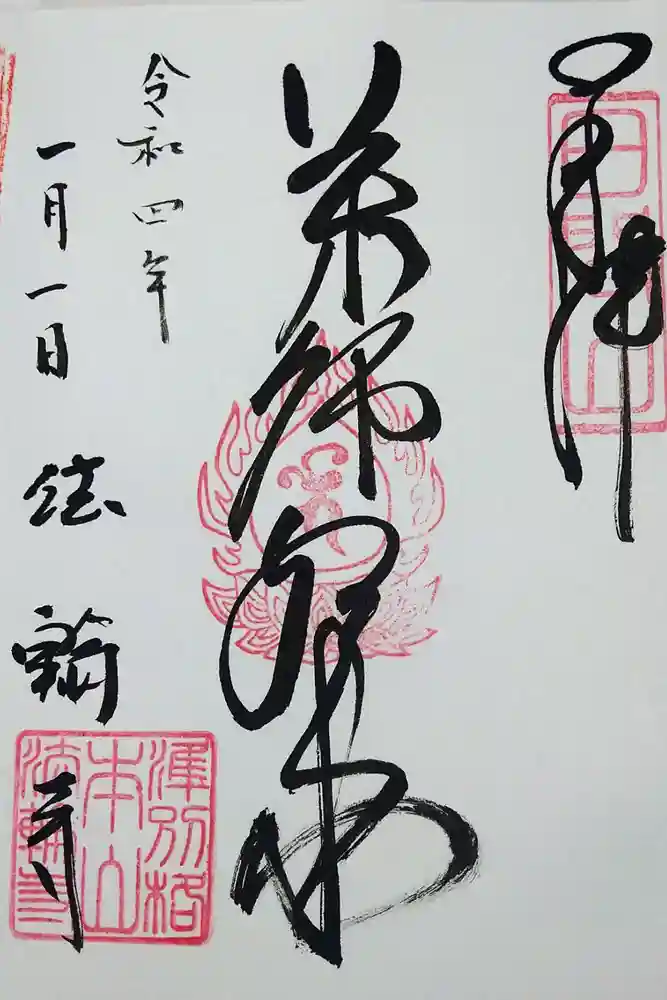 奉拝
薬師如来
令和四年
一月一日
法輪寺
準別格
本山
法輪寺